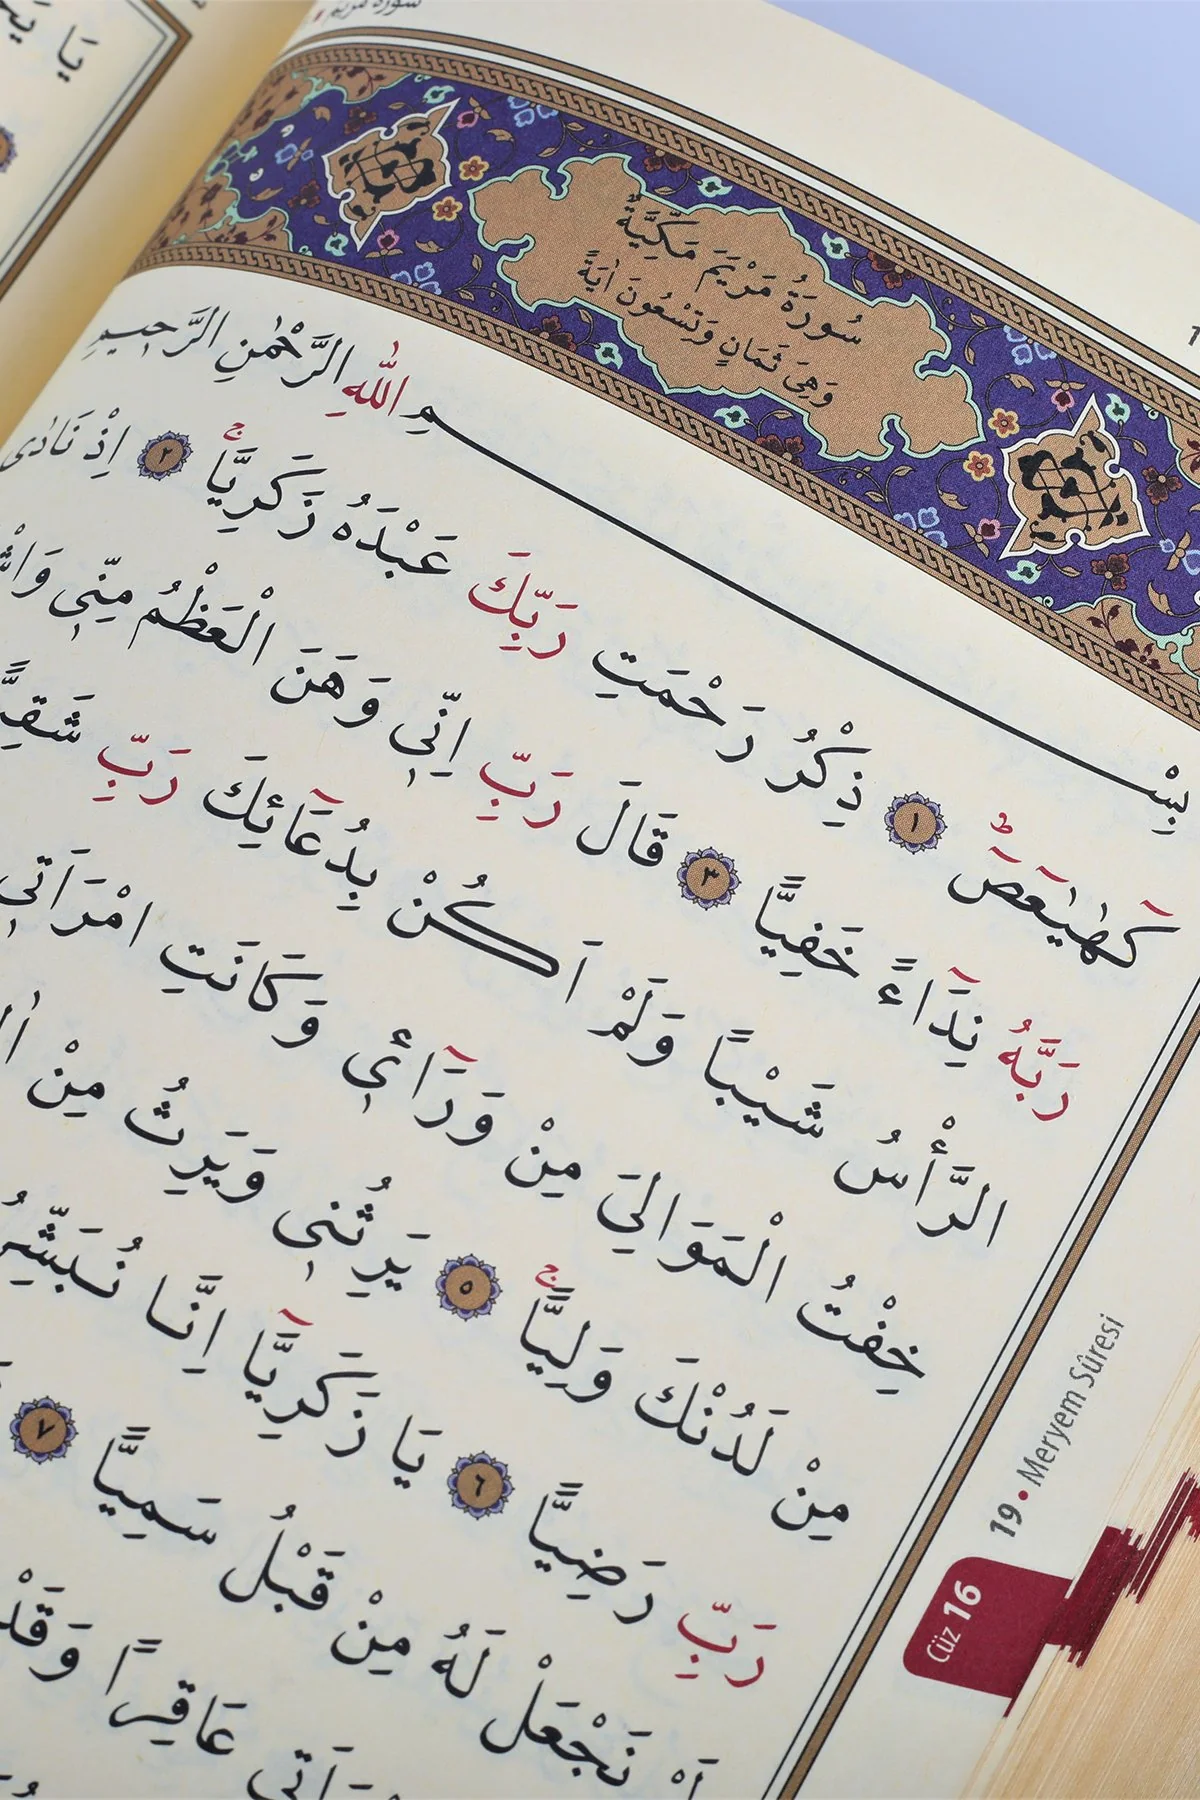 سورة مريم
سُورَةُ مَرْيَمَ مَكِّيَّةٌ
وَهِىَ ثَمَانٍ وَتِسْعُونَ اٰيَةً
بِسْمِ اللّٰهِ الرَّحْمٰنِ الرَّحِيمِ
كٓهٰيٰعٓصٓ ﴿١﴾ ذِكْرُ رَحْمَتِ رَبِّكَ عَبْدَهُ زَكَرِيَّاۚ ﴿٢﴾ اِذْ نَادٰى
رَبَّهُ نِدَٓاءً خَفِيًّا ﴿٣﴾ قَالَ رَبِّ اِنّٖى وَهَنَ الْعَظْمُ مِنّٖى
الرَّأْسُ شَيْبًا وَلَمْ اَكُنْ بِدُعَٓائِكَ رَبِّ شَقِيًّا
خِفْتُ الْمَوَالِيَ مِنْ وَرَٓائٖى وَكَانَتِ امْرَاَتٖى
مِنْ لَدُنْكَ وَلِيًّاۚ ﴿٥﴾ يَرِثُنٖى وَيَرِثُ مِنْ
رَبِّ رَضِيًّا ﴿٦﴾ يَا زَكَرِيَّٓا اِنَّا نُبَشِّرُ
نَجْعَلْ لَهُ مِنْ قَبْلُ سَمِيًّا ﴿٧﴾
عَاقِرًا وَقَدْ
19 • Meryem Sûresi
Cüz 16